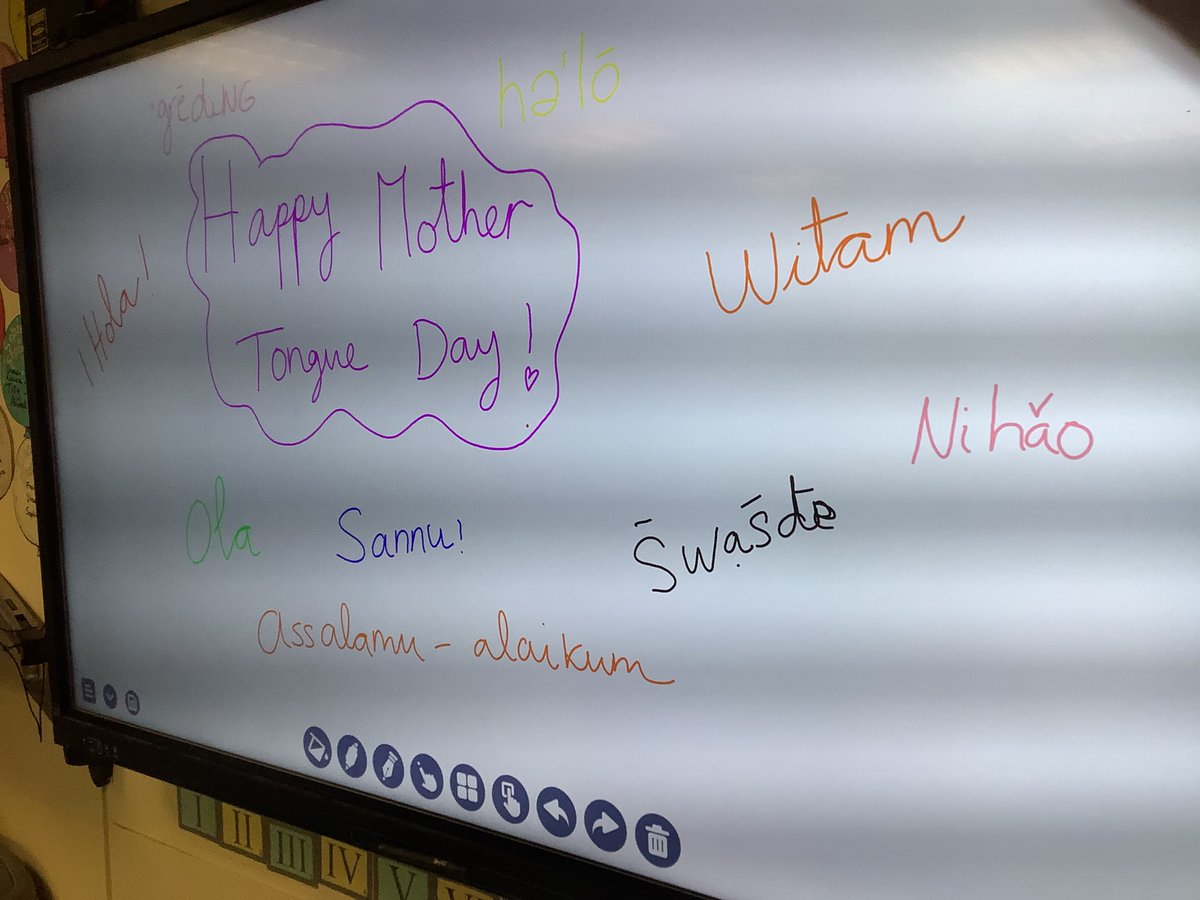 'grēdiNG
hə'lō
Happy Mother
Tongue Day!
¡Hola!
Witam
Ni hǎo
Ola
Sannu!
S̄wạs̄de
Assalamu - alaikum
I II III IV V